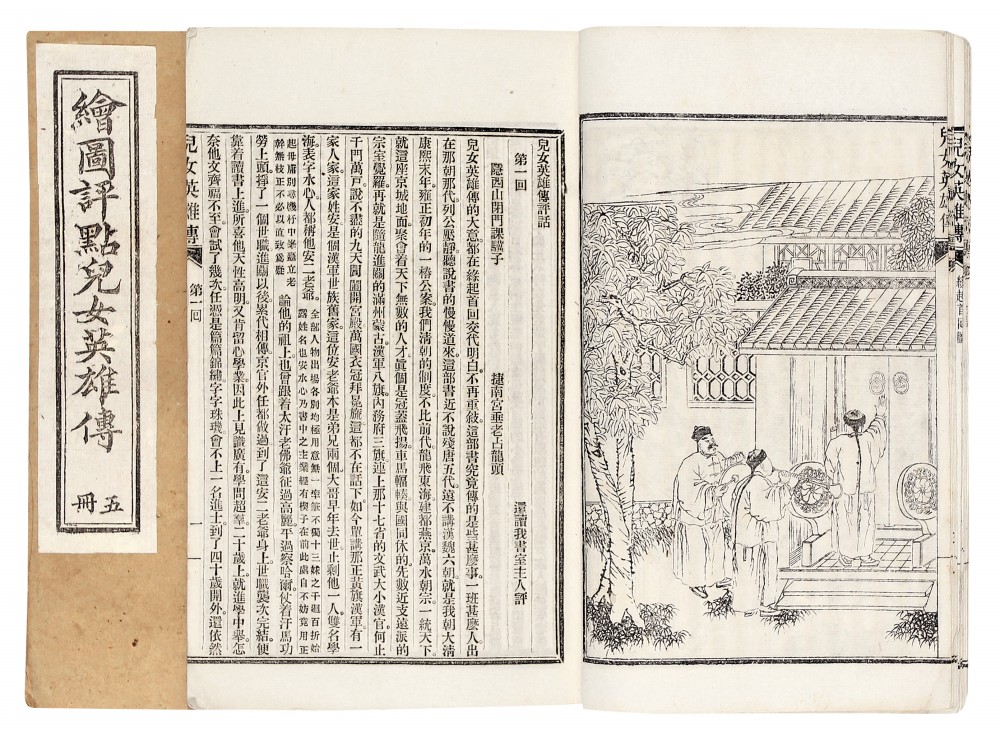 繪圖評點兒女英雄傳
五冊
兒女英雄傳
緣起首回
兒女英雄傳評話
還讀我書室主人評
第一回
隱西山閉門課驥子
捷南宮垂老占龍頭
兒女英雄傳的大意都在緣起首回交代明白不再重敘這部書究竟傳的是些甚麼事一班甚麼人出
在那朝那代列公壓靜聽說書的慢慢道來這部書近不說殘唐五代遠不講漢魏六朝就是我朝大清
康熙末年雍正初年的一樁公案我們清朝的制度不比前代龍飛東海建都燕京萬水朝宗一統天下
就這座京城地面聚會着天下無數的人才真個是冠蓋飛揚車馬輻輳與國同休的先數近支遠派的
宗室覺羅再就是隨龍進關的滿州蒙古漢軍八旗內務府三旗連上那十七省的文武大小漢官何止
千門萬戶說不盡的九天閶闔開宮殿萬國衣冠拜冕旒這都不在話下如今單講那正黃旗漢軍有一
家人家這家姓安是個漢軍世族舊家這位安老爺本是弟兄兩個大哥早年去世止剩他一人雙名學
海表字水心人都稱他安二老爺全部人物出場各別均極用意無一率筆不獨十三妹之千迴百折始
露姓名也安水心乃書中之主業經有楔子在前此處自不妨竟用正
起毋庸別尋機杼中樂蟲立老
幹無枝正不必以直致為嫌論他的祖上也曾跟着太汗老佛爺征過高麗平過察哈爾仗着汗馬功
勞上頭掙了一個世職進關以後累代相傳京官外任都做過到了這安二老爺身上世職襲次完結便
靠着讀書上進所喜他天性高明又肯留心學業因此上見識廣有學問超羣二十歲上就進學中舉怎
奈他文齊福不至會試了幾次任憑是篇篇錦繡字字珠璣會不上一名進士到了四十歲開外還依然
兒女英雄傳
第一回
一